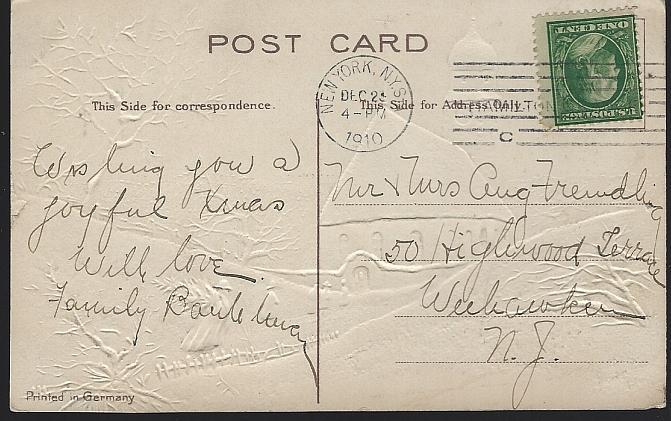 POST CARD
This Side for correspondence.
This Side for Address Only.
NEW YORK, N.Y.
DEC 2
4-PM
1910
HAMILTON
C
U.S. POSTAGE
ONE CENT
Wishing you a
joyful Xmas
With love
Family
Mr & Mrs Aug Fremdling
50 Highwood Terrace
Weehawken
N.J.
Printed in Germany